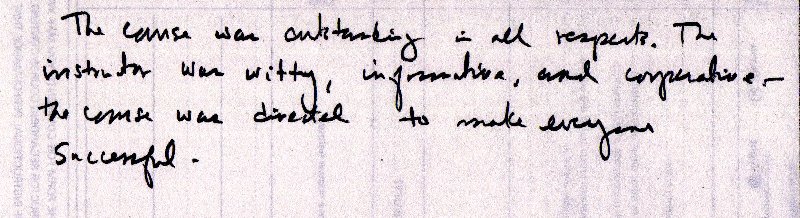 The course was outstanding in all respects. The
instructor was witty, informative, and cooperative –
the course was directed to make everyone
successful.